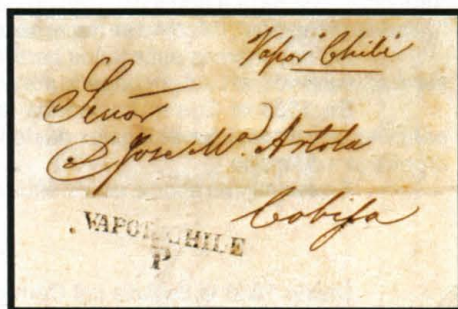 Vapor Chile
Señor
D Jose Ma. Artola
Cobija
VAPOR CHILE
P